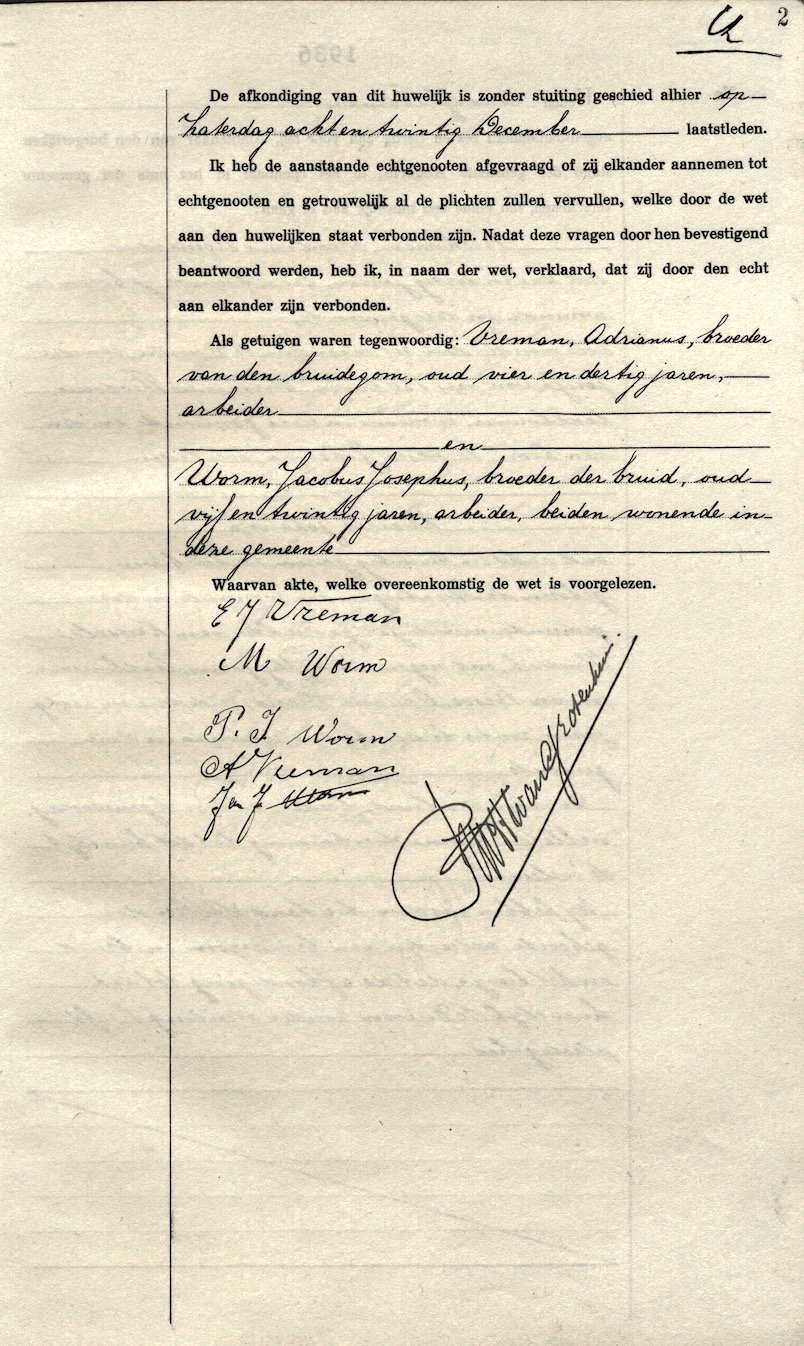 2
De afkondiging van dit huwelijk is zonder stuiting geschied alhier op
Zaterdag acht en twintig December laatstleden.
Ik heb de aanstaande echtgenooten afgevraagd of zij elkander aannemen tot
echtgenooten en getrouwelijk al de plichten zullen vervullen, welke door de wet
aan den huwelijken staat verbonden zijn. Nadat deze vragen door hen bevestigend
beantwoord werden, heb ik, in naam der wet, verklaard, dat zij door den echt
aan elkander zijn verbonden.
Als getuigen waren tegenwoordig: Vreman, Adrianus, broeder
van den bruidegom, oud vier en dertig jaren,
arbeider
en
Worm, Jacobus Josephus, broeder der bruid, oud
vijf en twintig jaren, arbeider, beiden wonende in
deze gemeente
Waarvan akte, welke overeenkomstig de wet is voorgelezen.
E J Vreman
M Worm
P. J. Worm
A Vreman